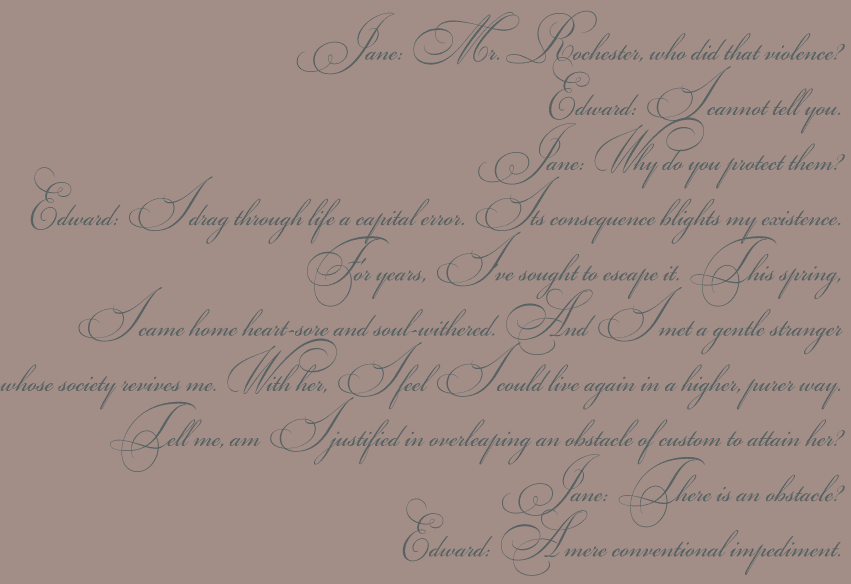 Jane: Mr. Rochester, who did that violence?
Edward: I cannot tell you.
Jane: Why do you protect them?
Edward: I drag through life a capital error. Its consequence blights my existence.
For years, I've sought to escape it. This spring,
I came home heart-sore and soul-withered. And I met a gentle stranger
whose society revives me. With her, I feel I could live again in a higher, purer way.
Tell me, am I justified in overleaping an obstacle of custom to attain her?
Jane: There is an obstacle?
Edward: A mere conventional impediment.